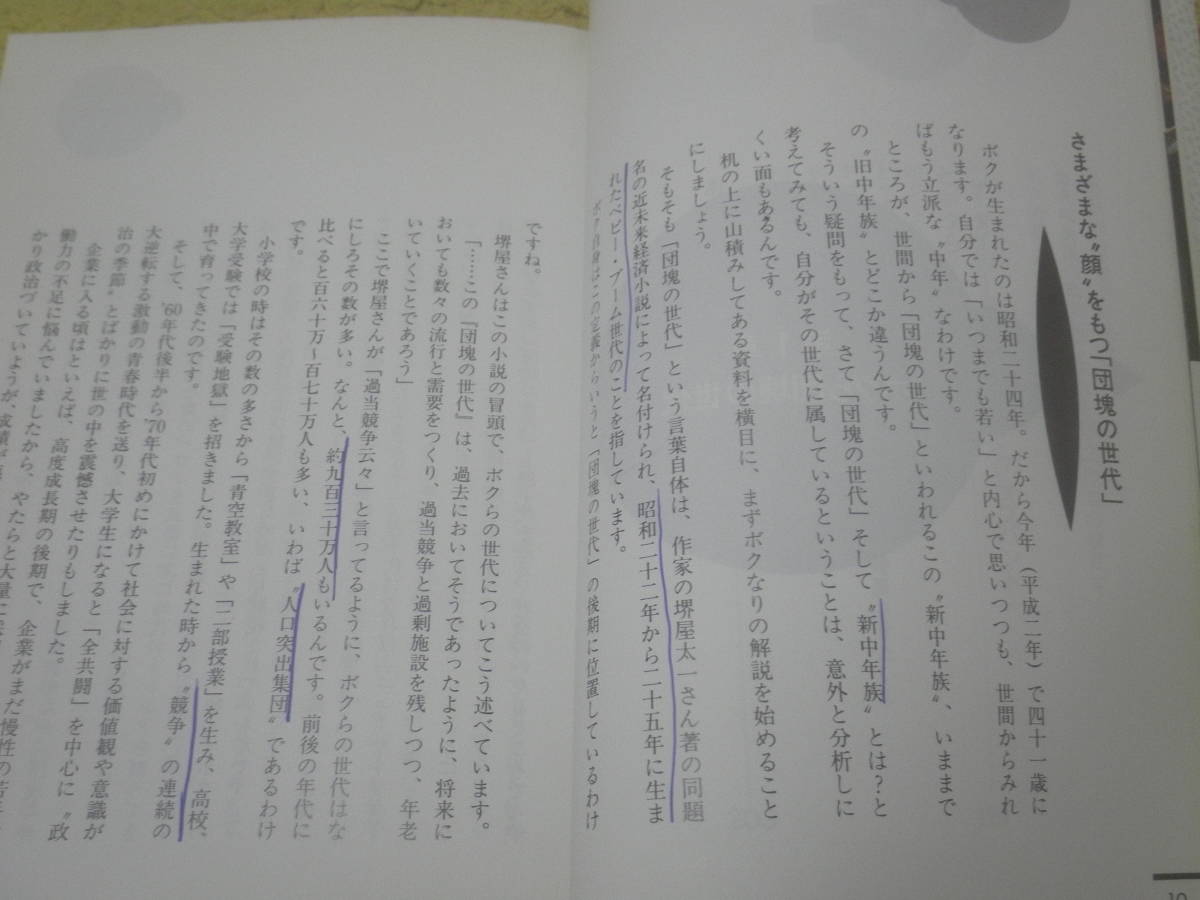 さまざまな〝顔〟をもつ「団塊の世代」
ボクが生まれたのは昭和二十四年。だから今年（平成二年）で四十一歳に
なります。自分では「いつまでも若い」と内心で思いつつも、世間からみれ
ばもう立派な〝中年〟なわけです。
ところが、世間から「団塊の世代」といわれるこの〝新中年族〟、いままで
の〝旧中年族〟とどこか違うんです。
そういう疑問をもって、さて「団塊の世代」そして〝新中年族〟とは？と
考えてみても、自分がその世代に属しているということは、意外と分析しに
くい面もあるんです。
机の上に山積みしてある資料を横目に、まずボクなりの解説を始めること
にしましょう。
そもそも「団塊の世代」という言葉自体は、作家の堺屋太一さん著の同題
名の近未来経済小説によって名付けられ、昭和二十二年から二十五年に生ま
れたベビー・ブーム世代のことを指しています。
ボク自身はこの定義からいうと「団塊の世代」の後期に位置しているわけ
ですね。
堺屋さんはこの小説の冒頭で、ボクらの世代についてこう述べています。
「……この『団塊の世代』は、過去においてそうであったように、将来に
おいても数々の流行と需要をつくり、過当競争と過剰施設を残しつつ、年老
いていくことであろう」
ここで堺屋さんが「過当競争云々」と言ってるように、ボクらの世代はな
にしろその数が多い。なんと、約九百三十万人もいるんです。前後の年代に
比べると百六十万〜百七十万人も多い、いわば〝人口突出集団〟であるわけ
です。
小学校の時はその数の多さから「青空教室」や「二部授業」を生み、高校、
大学受験では「受験地獄」を招きました。生まれた時から〝競争〟の連続の
中で育ってきたのです。
そして、'60年代後半から'70年代初めにかけて社会に対する価値観や意識が
大逆転する激動の青春時代を送り、大学生になると「全共闘」を中心に〝政
治の季節〟とばかりに世の中を震憾させたりもしました。
企業に入る頃はといえば、高度成長期の後期で、企業がまだ慢性の若年
働力の不足に悩んでいましたから、やたらと大量に
かり政治づいていようが、成績が
10